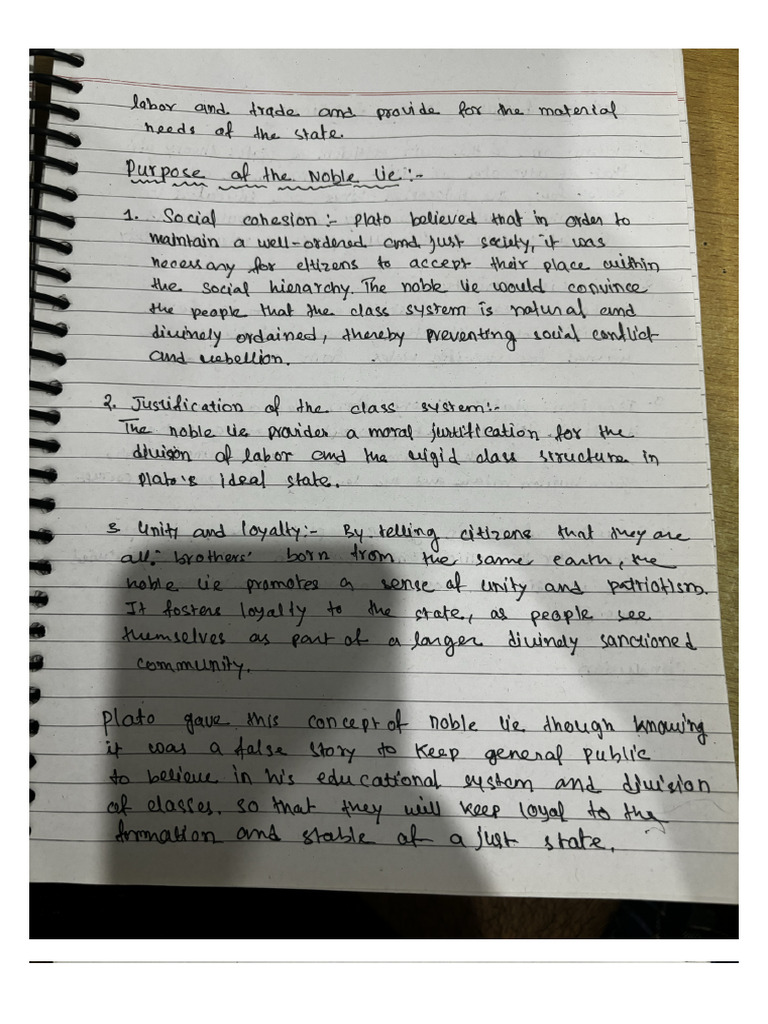 labor and trade and provide for the material
needs of the state.
Purpose of the Noble lie:-
1. Social cohesion:- Plato believed that in order to
maintain a well-ordered and just society, it was
necessary for citizens to accept their place within
the social hierarchy. The noble lie would convince
the people that the class system is natural and
divinely ordained, thereby preventing social conflict
and rebellion.
2. Justification of the class system:-
The noble lie provides a moral justification for the
division of labor and the rigid class structure in
Plato's ideal state.
3. Unity and loyalty:- By telling citizens that they are
all 'brothers' born from the same earth, the
noble lie promotes a sense of unity and patriotism.
It fosters loyalty to the state, as people see
themselves as part of a larger divinely sanctioned
community.
Plato gave this concept of noble lie though knowing
it was a false story to keep general public
to believe in his educational system and division
of classes. so that they will keep loyal to the
formation and stable of a just state.